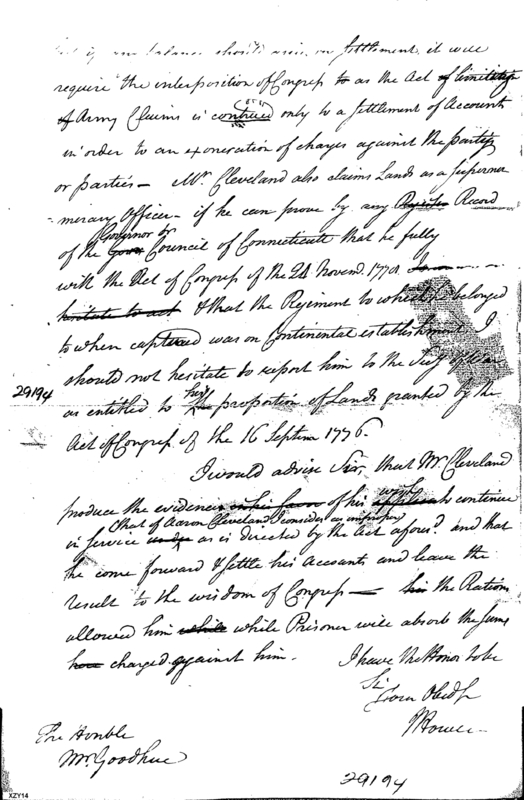 if any balance should arise on settlement it will
require the interposition of Congress to as the Act of limitation
of Army Claims is contrued only to a settlement of Accounts
in order to an exoneration of charges against the party
or parties — Mr. Cleveland also claims Lands as a supernu
merary Officer - if he can prove by any Register Record
Governor or
of the Gover Council of Connecticutt that he fully
with the Act of Congress of the 24 Novem. 1778
hesitate to act & that the Regiment to which he belonged
to when captured was on Continental establishment I
should not hesitate to report him to the Secy of War
29194
his
as entitled to the proportion of Lands granted by the
Act of Congress of the 16 Septem 1776.
I would advise Sir, that Mr. Cleveland
wish
produce the evidence in his favor of his to continue
that of Aaron Cleveland I consider as improper
in service as is directed by the Act afores.d and that
he come forward & settle his Accounts and leave the
result to the wisdom of Congress — his the Rations
allowed him while while Prisoner will absorb the sums
have charged against him. I have the Honor to be
Sir
Your Obed
Howell
The Honble
Mr. Goodhue
29194
XZY14